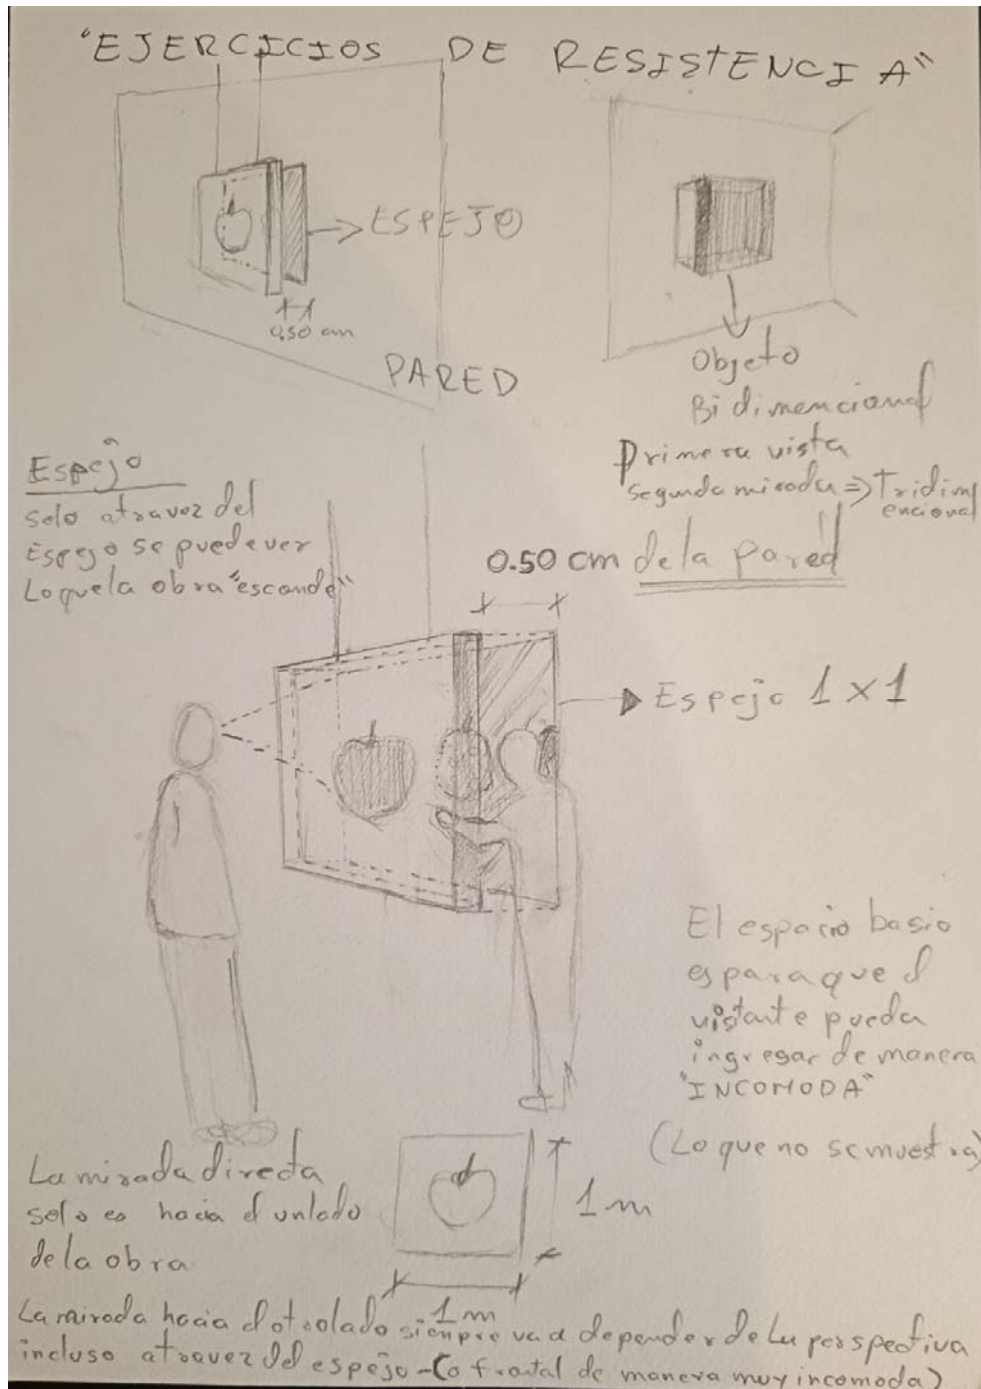 "EJERCICIOS DE RESISTENCIA"
ESPEJO
0,50 cm
PARED
Objeto
Bidimencional
Primera vista
segunda mirada => Tridim
encional
Espejo
solo atravez del
Espejo se puede ver
Lo que la obra "esconde"
0.50 cm de la pared
Espejo 1 x 1
El espacio basio
es para que el
visitante pueda
ingresar de manera
"INCOMODA"
(Lo que no se muestra)
La mirada directa
solo es hacia el un lado
de la obra
1 m
1 m
La mirada hacia el otro lado siempre va a depender de tu perspectiva
incluso atravez del espejo - (o frontal de manera muy incomoda)